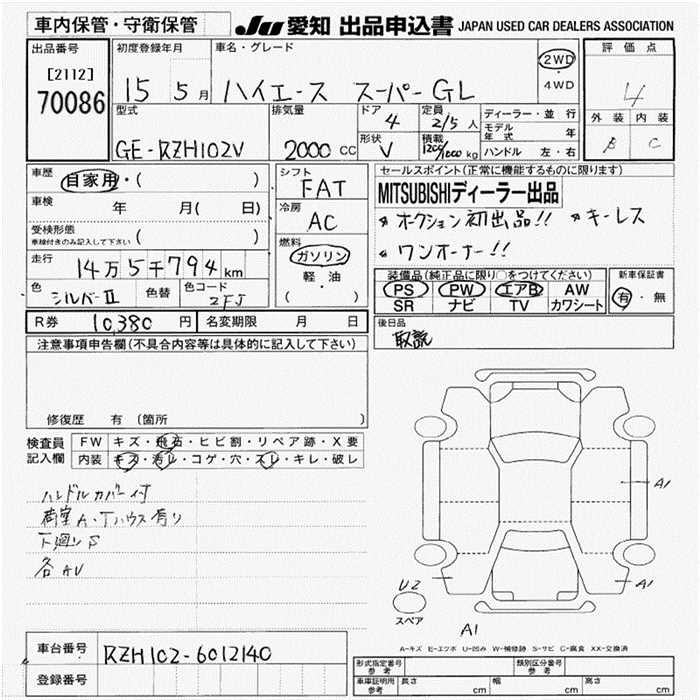 車内保管・守衛保管
JU 愛知 出品申込書 JAPAN USED CAR DEALERS ASSOCIATION
出品番号
[2112]
70086
初度登録年月
15 5月
車名・グレード
ハイエース スーパーGL
2WD
・
4WD
評価点
4
外装 内装
B C
型式
GE-RZH102V
排気量
2000 CC
ドア
4
形状
V
定員
2/5 人
積載
1200/1000 kg
ディーラー・並行
モデル年式 年
ハンドル 左・右
車歴
自家用・( )
車検 年 月( 日)
受検形態
車検付きのみ記入して下さい ( )
走行 14万5千794km
色 シルバーII 色替 色コード 2FJ
シフト
FAT
冷房
AC
燃料
ガソリン
軽油
( )
セールスポイント(正常に機能するものに限ります)
MITSUBISHIディーラー出品
* オークション初出品!! * キーレス
* ワンオーナー!!
装備品(純正品に限り○をつけてください)
PS PW エアB AW
SR ナビ TV カワシート
新車保証書
有・無
R券 10,380円 名変期限 月 日
後日品
取説
注意事項申告欄(不具合内容等は具体的に記入して下さい)
修復歴 有 〔箇所 〕
検査員記入欄
FW キズ・飛石・ヒビ割・リペア跡・X要
内装 キズ・汚レ・コゲ・穴・スレ・キレ・破レ
ハンドルカバー付
荷室A・Tハウス有り
下廻りS
各AU
A1
A1
U2
スペア
A1
A-キズ E-エクボ U-凹み W-補修跡 S-サビ C-腐食 XX-交換済
車台番号 RZH102-6012140
登録番号
形式指定番号参考
類別区分番号参考
車庫証明用参考 長さ cm 幅 cm 高さ cm